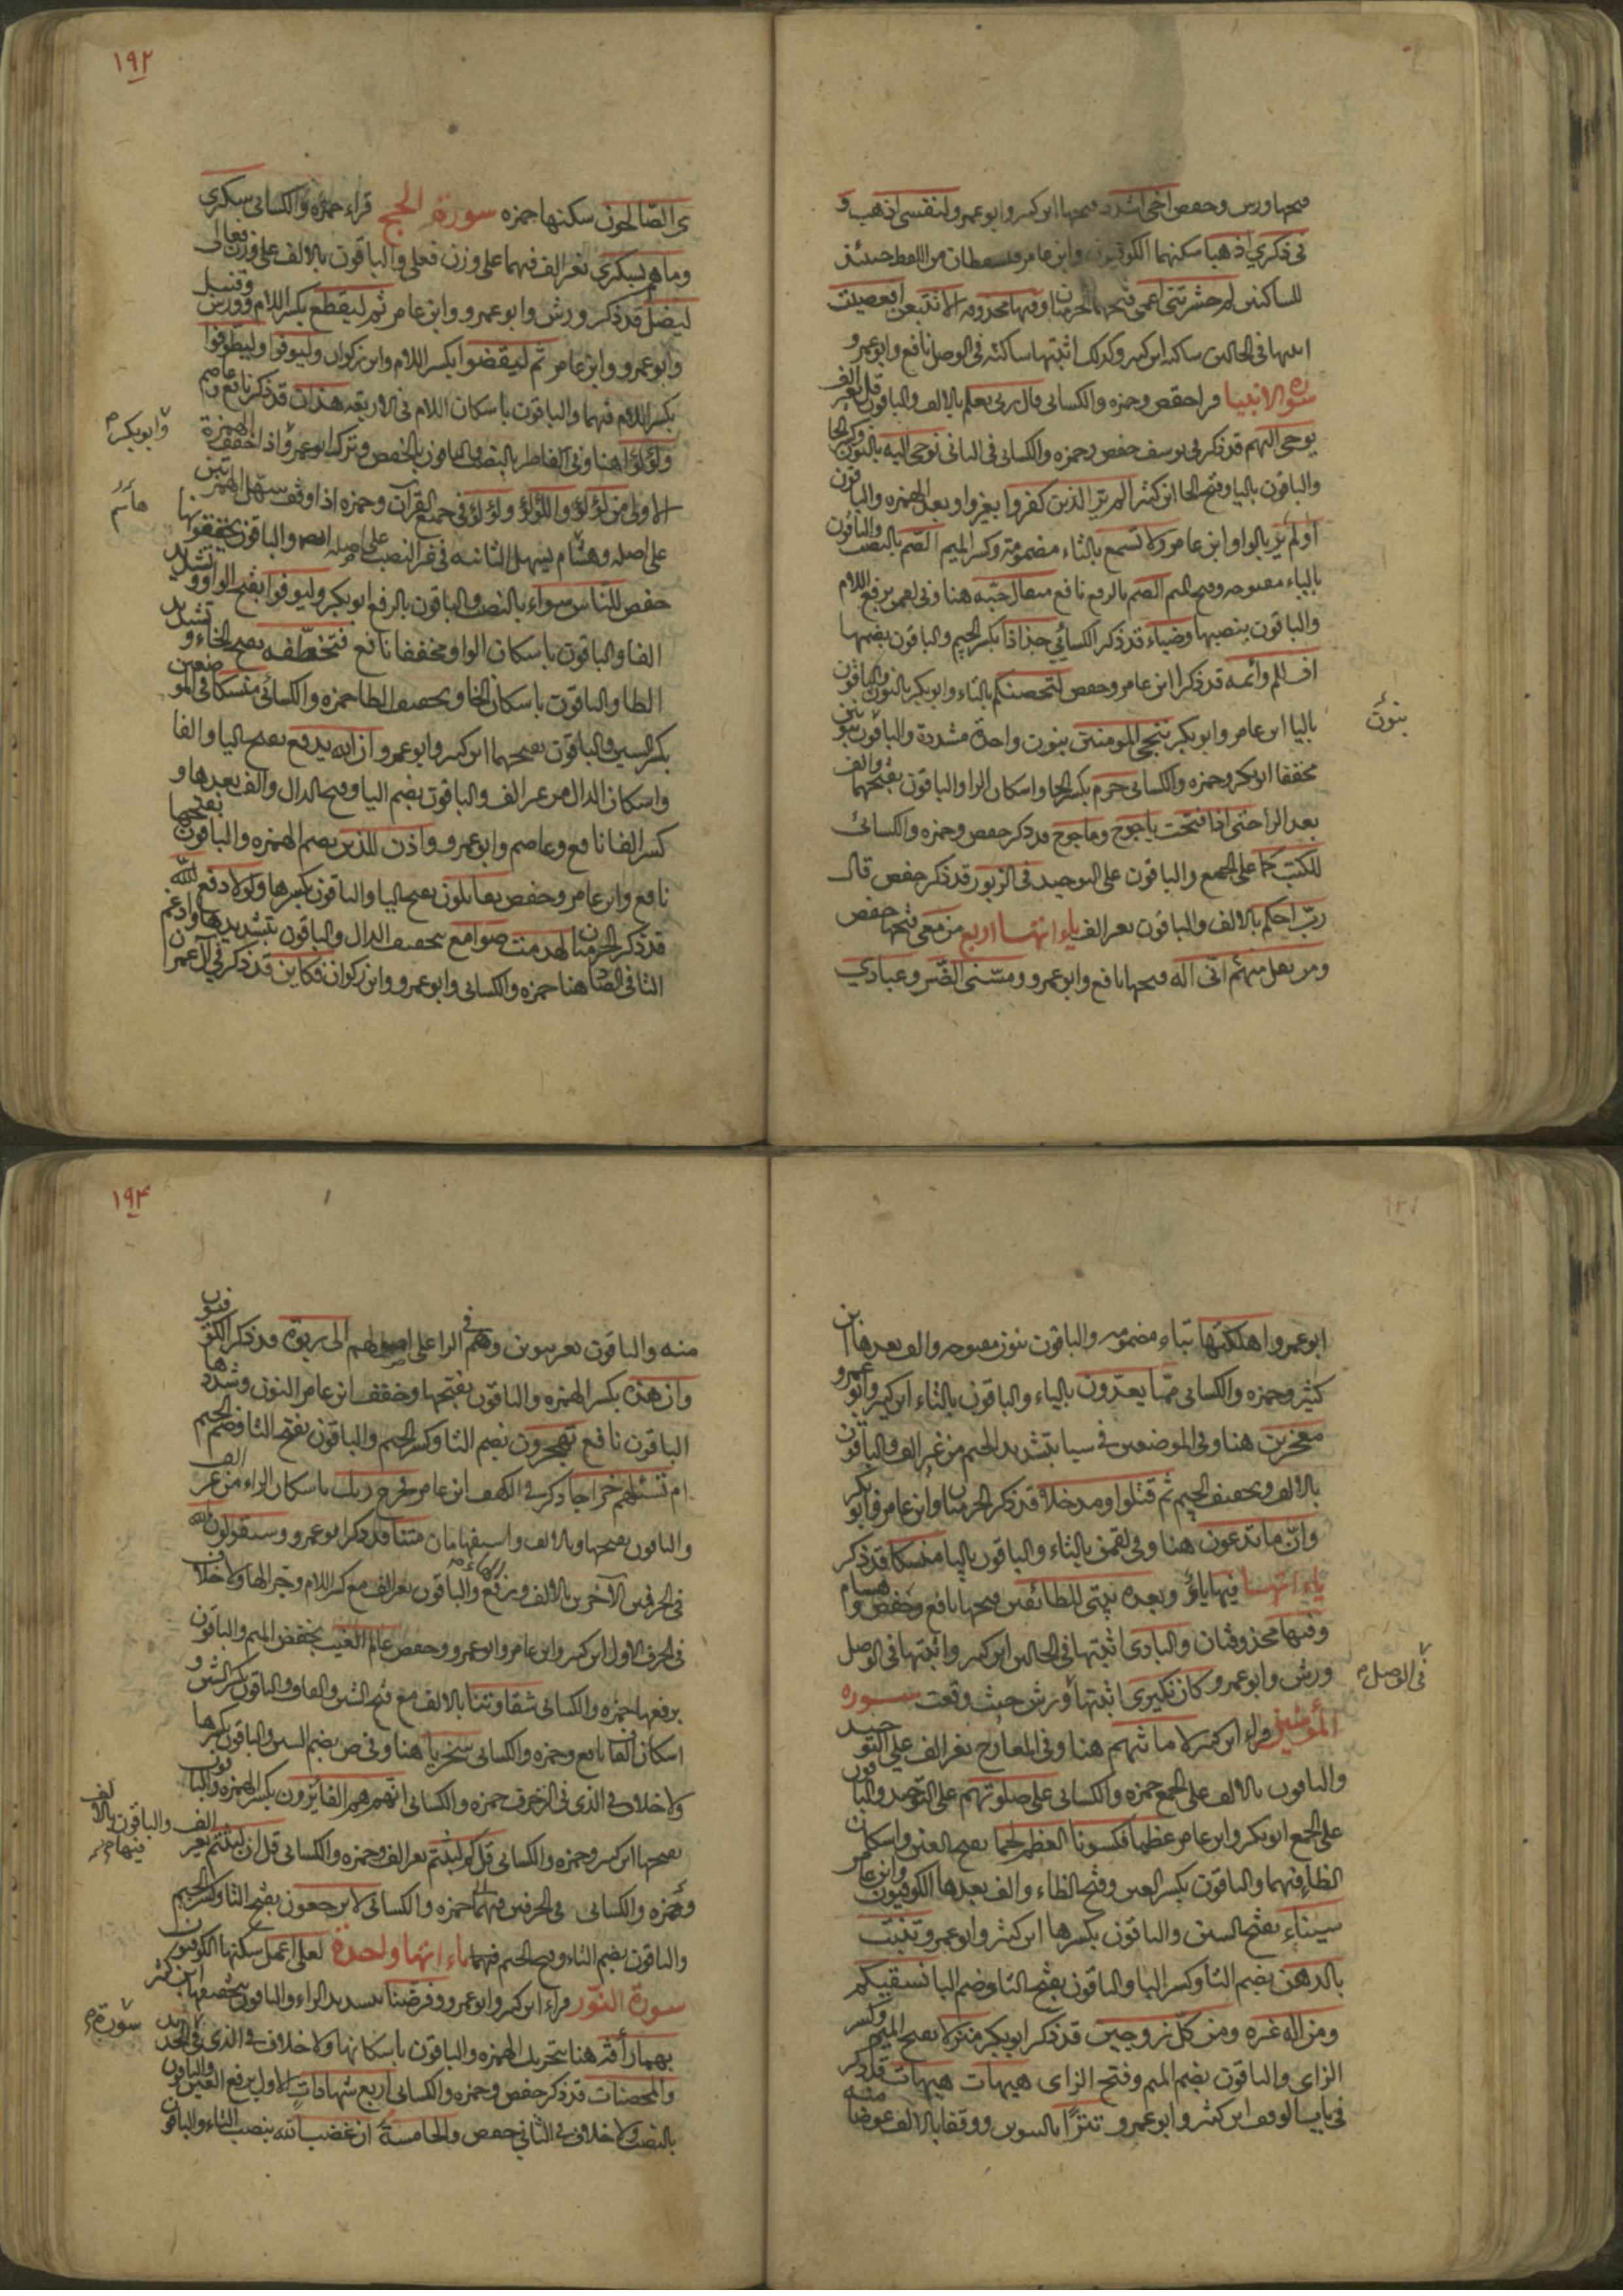 فتحها ورش وحفص اخى اشدد فتحها ابن كثير وابو عمرو لنفسى اذهب و
فى ذكري اذهبا سكنهما الكوفيون وابن عامر فيسقطان من اللفظ حينئذ
للساكنين لم حشرتنى اعمى فتحها الحرميان وفيها محذوفة الا تتبعن افعصيت
اثبتها فى الحالين ساكنة ابن كثير وكذلك اثبتها ساكنة فى الوصل نافع وابو عمرو
سورة الانبيا قرا حفص وحمزه والكسائى قال ربى يعلم بالالف والباقون قل بغير الف
يوحى اليهم قد ذكر فى يوسف حفص وحمزه والكسائى فى الثانى نوحى اليه بالنون وكسر الحا
والباقون باليا وفتح الحا ابن كثير الم ير الذين كفروا بغير واو بعد الهمزه والباقون
اولم ير بالواو ابن عامر ولا تسمع بالتاء مضمومة وكسر الميم الصم بالنصب والباقون
بالياء مفتوحه وفتح الميم الصم بالرفع نافع مثقال حبة هنا وفى لقمن برفع اللام
والباقون بنصبها وضياء قد ذكر الكسائي جذاذا بكسر الجيم والباقون بضمها
اف لكم وائمه قد ذكرا ابن عامر وحفص لتحصنكم بالتاء وابو بكر بالنون والباقون
باليا ابن عامر وابو بكر نجى المومنين بنون واحدة مشددة والباقون بنونين
بنون
مخففا ابو بكر وحمزه والكسائى حرم بكسر الحا واسكان الرا والباقون بفتحهما والف
بعد الرا حتى اذا فتحت ياجوج وماجوج قد ذكر حفص وحمزه والكسائى
للكتب على الجمع والباقون على التوحيد فى الزبور قد ذكر حفص قال
رب احكم بالالف والباقون بغير الف ياءاتها اربع من معى فتحها حفص
ومن يقل منهم انى اله فتحها نافع وابو عمرو ومسنى الضر وعبادي
١٩٢
ى الصالحون سكنها حمزه سورة الحج قراء حمزه والكسائى سكرى
وما هم بسكرى بغير الف فيهما على وزن فعلى والباقون بالالف على وزن فعالى
ليضل قد ذكر ورش وابو عمرو وابن عامر ثم ليقطع بكسر اللام وورش وقنبل
وابو عمرو وابن عامر ثم ليقضوا بكسر اللام وابن ذكوان وليوفوا وليطوفوا
بكسر اللام فيهما والباقون باسكان اللام فى الاربعه هذان قد ذكر نافع وعاصم
وابو بكر
ولؤلؤا هنا وفى الفاطر بالنصب والباقون بالخفض وترك ابو عمرو اذا خفف الهمزة
الاولى من لؤلؤ واللؤلؤ ولؤلؤ فى جميع القرآن وحمزه اذا وقف سهل الهمزتين
على اصله وهشام يسهل الثانيه فى غير النصب على اصله ايضا والباقون يحققونها
حفص للناس سواء بالنصب والباقون بالرفع ابو بكر وليوفوا بفتح الواو وتشديد
الفا والباقون باسكان الواو مخففا نافع فتخطفه بفتح الخاء وتشديد
الطا والباقون باسكان الخا وتخفيف الطا حمزه والكسائى منسكا فى الموضعين
بكسر السين والباقون بفتحهما ابن كثير وابو عمرو ان الله يدفع بفتح اليا والفا
واسكان الدال من غير الف والباقون بضم اليا وفتح الدال والف بعدها و
كسر الفا نافع وعاصم وابو عمرو واذن للذين بضم الهمزه والباقون بفتحها
نافع وابن عامر وحفص يقاتلون بفتح اليا والباقون بكسرها ولولا دفع الله
قد ذكر الحرميان لهدمت صوامع بتخفيف الدال والباقون بتشديدها وادغم
التا فى الصاد هنا حمزه والكسائى وابو عمرو وابن ذكوان فكاين قد ذكر فى آل عمران
ابو عمرو اهلكتها بتاء مضمومه والباقون بنون مفتوحه والف بعدها ابن
كثير وحمزه والكسائى مما يعدون بالياء والباقون بالتاء ابن كثير وابو عمرو
معجزين هنا وفى الموضعين فى سبا بتشديد الجيم من غير الف والباقون
بالالف وتخفيف الجيم ثم قتلوا ومدخلا قد ذكر الحرميان وابن عامر وابو بكر
وان ما تدعون هنا وفى لقمن بالتاء والباقون باليا منسكا قد ذكر
ياءاتها فيها ياء وبعده بيتى للطائفين فتحها نافع وحفص وهشام
وفيها محذوفتان والبادى اثبتها فى الحالين ابن كثير واثبتها فى الوصل
ورش وابو عمرو كان نكيرى اثبتها ورش حيث وقعت سوره
فى الوصل
المؤمنين قراء ابن كثير لاماناتهم هنا وفى المعارج بغير الف على التوحيد
والباقون بالالف على الجمع حمزه والكسائى على صلوتهم على التوحيد والباقون
على الجمع ابو بكر وابن عامر عظما فكسونا العظم لحما بفتح العين واسكان
الظاء فيهما والباقون بكسر العين وفتح الظاء والف بعدها الكوفيون وابن عامر
سيناء بفتح السين والباقون بكسرها ابن كثير وابو عمرو تنبت
بالدهن بضم التا وكسر البا والباقون بفتح التا وضم البا نسقيكم
ومن اله غيره ومن كل زوجين قد ذكر ابو بكر منزلا بفتح الميم وكسر
الزاى والباقون بضم الميم وفتح الزاى هيهات هيهات قد ذكر
فى باب الوقف ابن كثير وابو عمرو تترا بالتنوين ووقفا بالالف عوضا منه
١٩٤
منه والباقون بغير تنوين وهم فى الرا على اصولهم الى ربوة قد ذكر الكوفيون
وان هذه بكسر الهمزه والباقون بفتحها وخفف ابن عامر النون وشددها
الباقون نافع تهجرون بضم التا وكسر الجيم والباقون بفتح التا وضم الجيم
ام تسئلهم خراجا ذكر فى الكهف ابن عامر فخرج ربك باسكان الراء من غير الف
والباقون بفتحها وبالالف واستفهامان متنا قد ذكر ابو عمرو وسيقولون الله
فى الحرفين الآخرين بالالف ورفع الهاء والباقون بغير الف مع كسر اللام وجر الها ولا خلاف
فى الحرف الاول ابن كثير وابن عامر وابو عمرو وحفص عالم الغيب بخفض الميم والباقون
برفعها حمزه والكسائى شقاوتنا بالالف مع فتح الشين والقاف والباقون بكسر الشين و
اسكان القاف نافع وحمزه والكسائى سخريا هنا وفى ص بضم السين والباقون بكسرها
ولا خلاف فى الذى فى الزخرف حمزه والكسائى انهم هم الفائزون بكسر الهمزه والباقون
بفتحها ابن كثير وحمزه والكسائى قل كم لبثتم بغير الف وحمزه والكسائى قل ان لبثتم بغير الف
والباقون بالالف فيهما
وحمزه والكسائى فى الحرفين فيهما حمزه والكسائى لا يرجعون بفتح التا وكسر الجيم
والباقون بضم التاء وفتح الجيم فيهما ياءاتها واحدة لعلى اعمل سكنها الكوفيون
سورة النور قراء ابن كثير وابو عمرو وفرضنا بتشديد الراء والباقون بتخفيفها ابن كثير
سورة
بهما رأفة هنا بتحريك الهمزه والباقون باسكانها ولا خلاف فى الذى فى الحديد
والمحصنات قد ذكر حفص وحمزه والكسائى اربع شهادات الاول برفع العين والباقون
بالنصب ولا خلاف فى الثانى حفص والخامسة ان غضب الله بنصب التاء والباقون